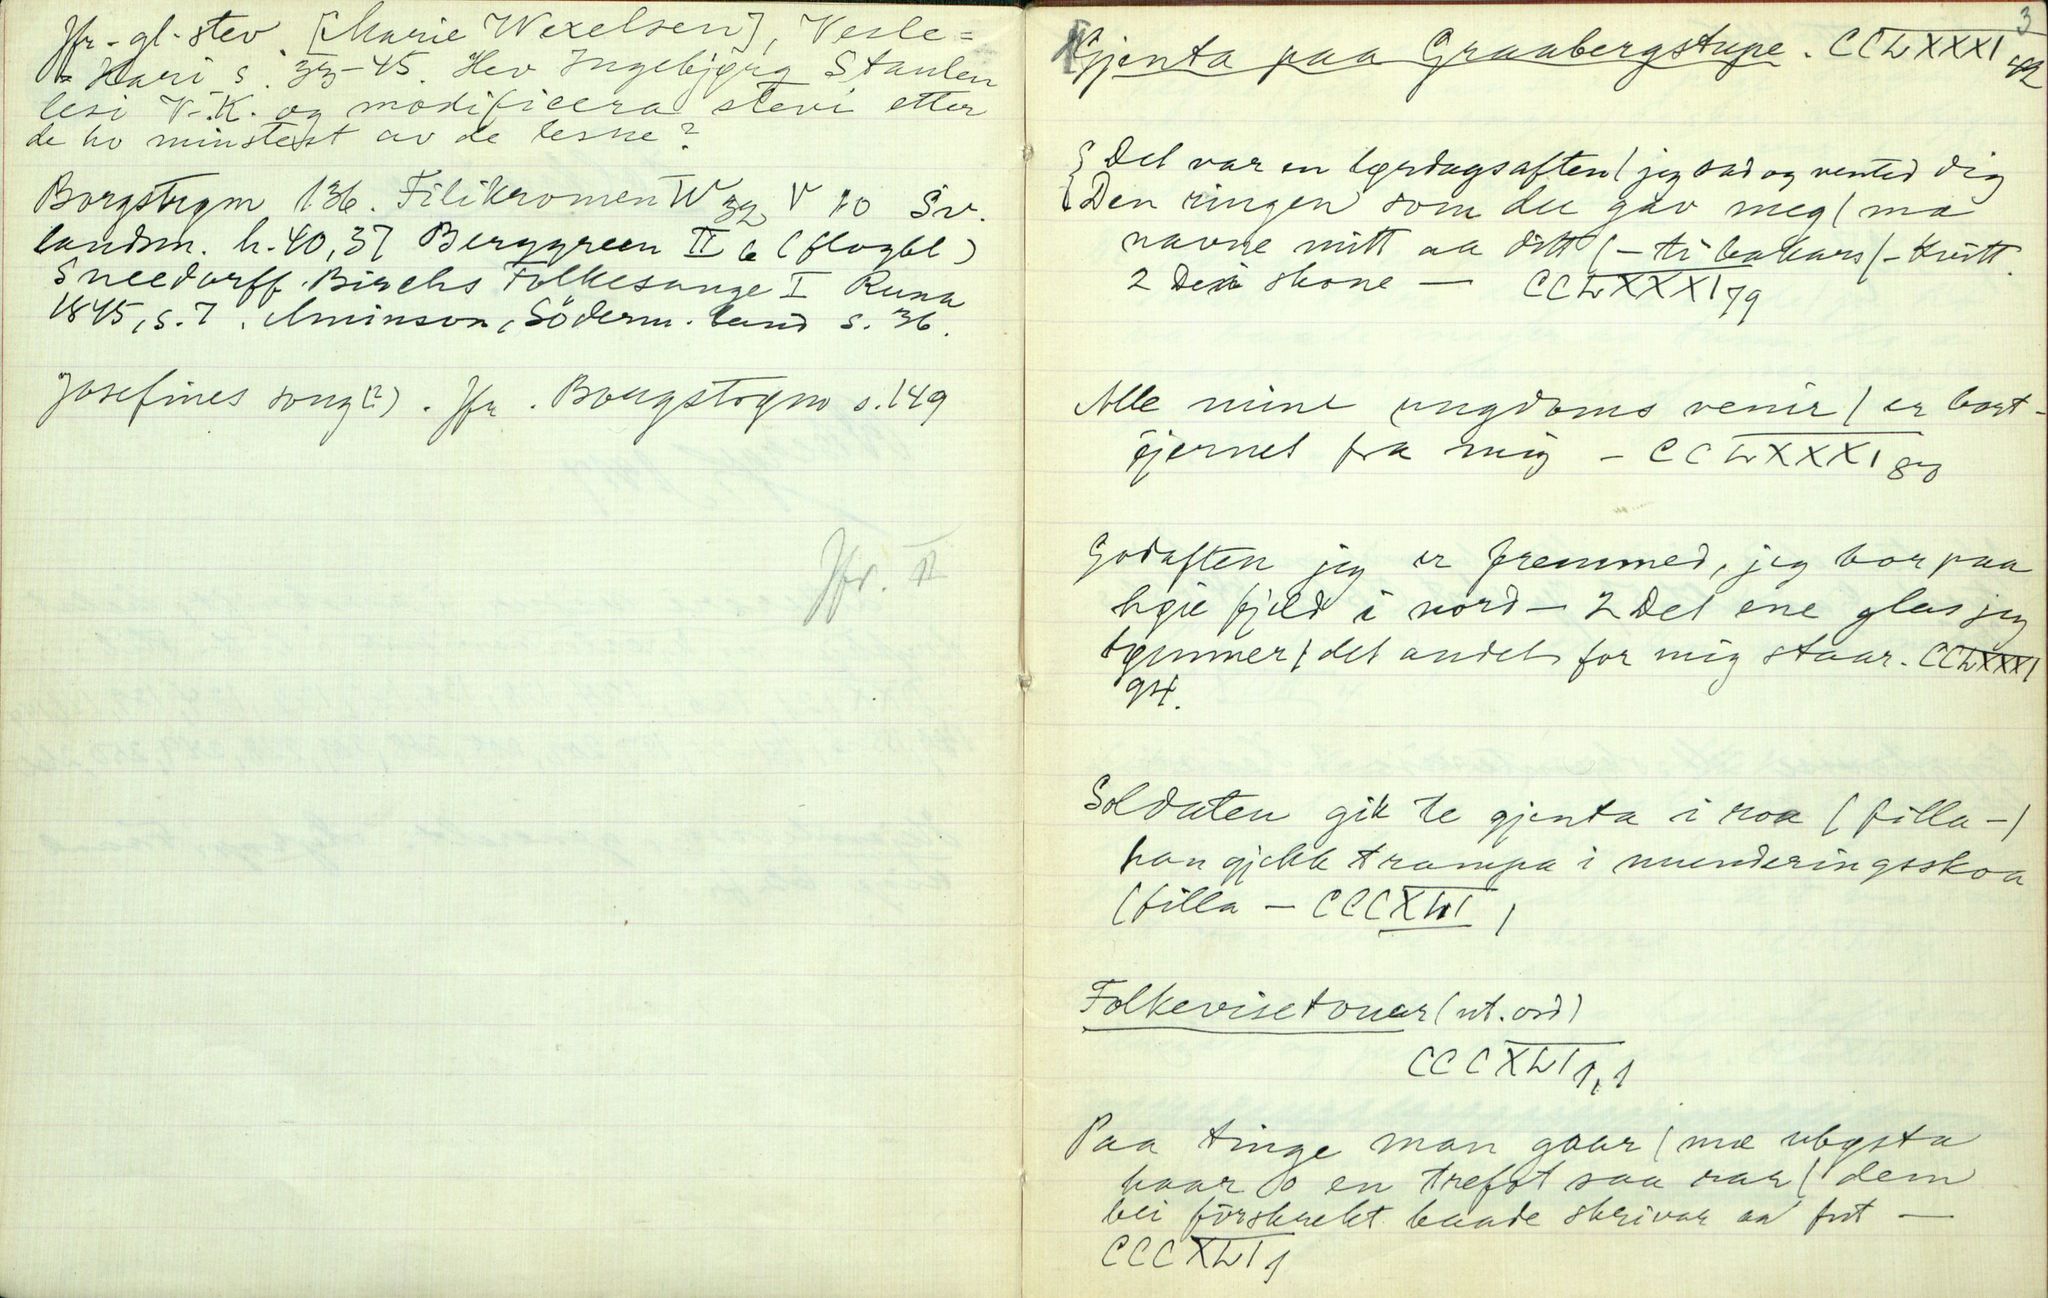 Jfr. gl. stev. [Marie Wexelsen], Vesle=
= Kari s. 33-45. Hev Ingebjørg Staulen
lesi V. K. og modificera stevi etter
de ho mintest av de lesne?
Borgstrøm 136. Filikromen IV 32 V 10 Sv.
landsm. h. 40, 37 Berggreen II b (flogbl)
Sneedorff-Birchs Folkesange I Runa
1845, s. 7. Aminson, Söderm. land s. 36.
Josefines song(?). Jfr. Borgstrøm s. 149
Jfr. II
3
Gjenta paa Graabergstupe. CCLXXXI 42
Det var en lørdagsaften / jeg sad og vented dig
Den ringen som du gav meg / mæ
navne mitt aa ditt (- ti bakars / - kvitt.
2 Den skone — CCLXXXI 79
Alle mine ungdoms venir / er bort-
fjernet fra mig - CCLXXXI 80
Godaften jeg er fremmed, jeg bor paa
høie fjeld i nord - 2 Det ene glas jeg
tømmer / det andet for mig staar. CCLXXXI
94.
Soldaten gik te gjenta i roa (filla -)
han gjekk trampa i munderingsskoa
(filla - CCCXLI 1
Folkevisetonar (ut. ord)
CCCXLI 1, 1
Paa tinge man gaar / mæ ubøsta
haar o en trefot saa rar / dem
bei förskrekt baade skrivar aa fut —
CCCXLI 1